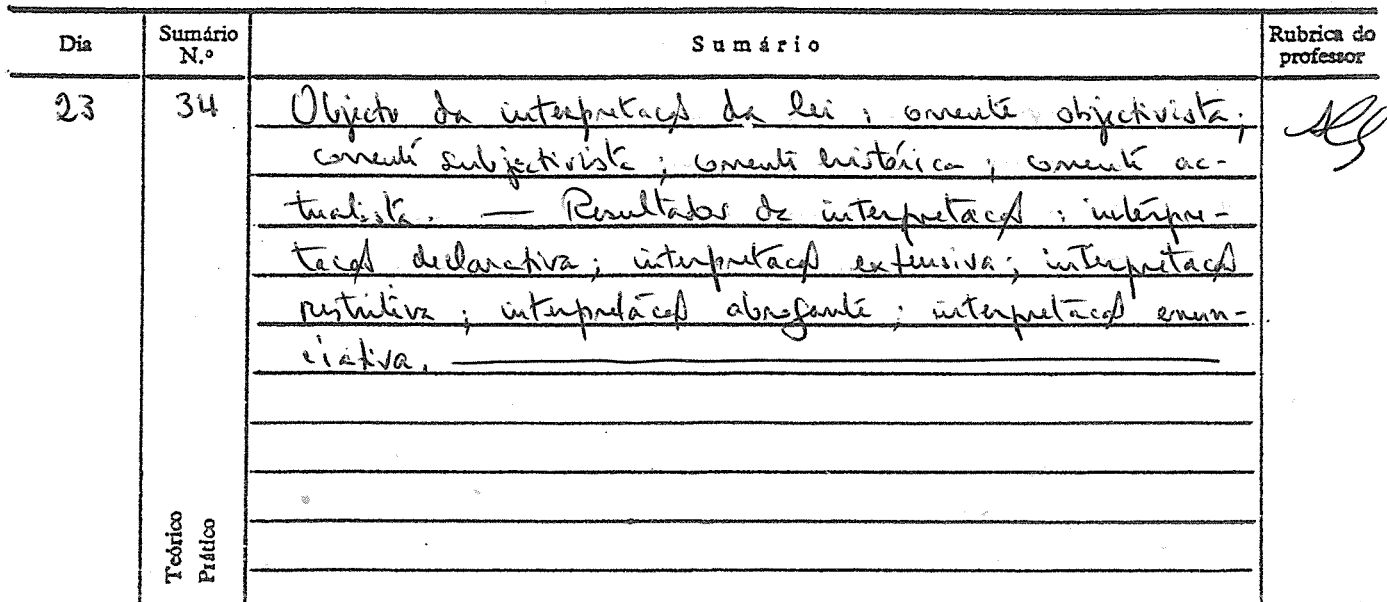 Dia Sumário N.º Sumário Rubrica do professor
23 34 Objecto da interpretação da lei: corrente objectivista;
corrente subjectivista; corrente histórica; corrente ac-
tualista. — Resultados da interpretação: interpre-
tação declarativa; interpretação extensiva; interpretação
restritiva; interpretação abrogante; interpretação enun-
ciativa. —
Teórico
Prático